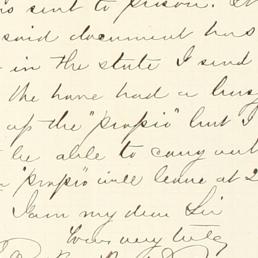 sent to prison.
said document has
in the state I send
the have had a
up the "propio" but I
be able to carry out
"propio" will leave at 2
I am my dear Sir
Yours very truly